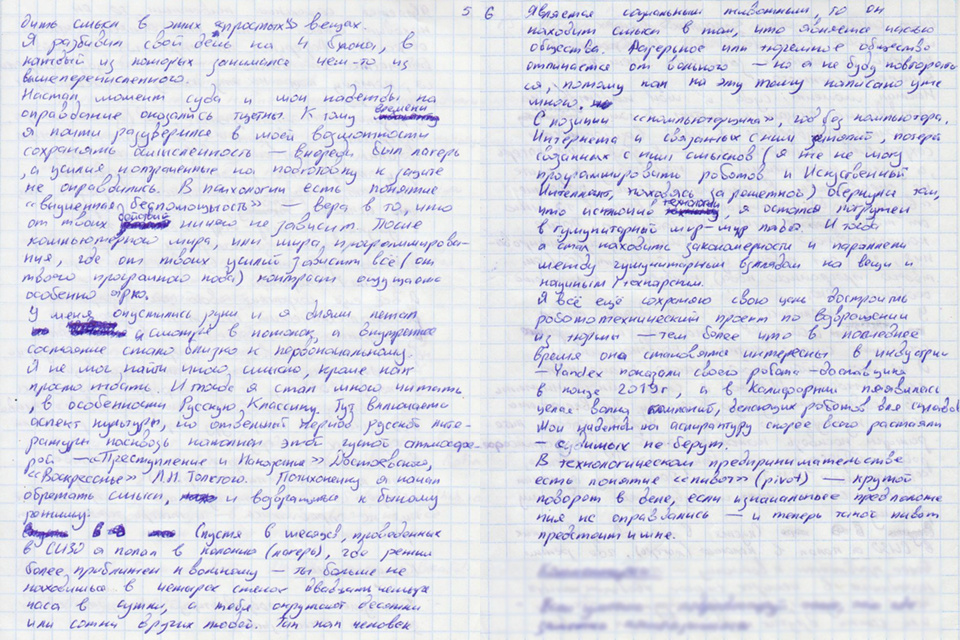 дить смысл в этих «простых» вещах.
Я разбивал свой день на 4 блока, в
каждый из которых занимался чем-то из
вышеперечисленного.
Настал момент суда и мои надежды на
оправдание оказались тщетны. К тому времени
я почти разуверился в моей возможности
сохранять осмысленность — впереди был лагерь
, а усилия потраченные на подготовку к защите
не оправдались. В психологии есть понятие
«выученная беспомощность» — вера в то, что
от твоих действий ничего не зависит. После
компьютерного мира, или мира, программирова-
ния, где от твоих усилий зависит всё (от
твоего програмного кода) контраст ощущался
особенно ярко.
У меня опустились руки и я днями лежал
и смотрел в потолок, а внутреннее
состояние стало близко к первоначальному.
Я не мог найти иного смысла, кроме как
просто ждать. И тогда я стал много читать
, в особенности Русскую Классику. Тут включается
аспект культуры, но отвечный период русской лите-
ратуры насквозь наполнен этой густой атмосфе-
рой — «Преступление и Наказание» Достоевского,
«Воскресенье» Л.Н. Толстого. Потихоньку я начал
обретать смысл, и возвращаться к былому
режиму.
Спустя 8 месяцев, проведенных
в СИЗО я попал в колонию (лагерь), где режим
более приближен к вольному — ты больше не
находишься в четырех стенах двадцать четыре
часа в сутки, а тебя окружают десятки
или сотни других людей. Так как человек
5
6
является социальным животным, то он
находит смысл в том, что является частью
общества. Лагерное или тюремное общество
отличается от вольного — но я не буду повторять
ся, потому как на эту тему написано уже
много.
С позиции «компьютерщика», год без компьютера,
Интернета и связанных с ним занятий, потеря
связанных с ним смыслов (я же не могу
программировать роботов и Искуственный
Интеллект, находясь за решеткой) обернулся тем,
что источно технологии, я остался погружен
в гуманитарный мир-мир людей. И тогда
я стал находить закономерности и параллели
между гуманитарным взглядом на вещи и
научным / технарским.
Я всё ещё сохраняю свою цель достроить
робототехнический проект по возвращении
из тюрьмы — тем более что в последнее
время она становятся интересны в индустрии
— Yandex показали своего робота-доставщика
в конце 2019г, а в Калифорнии появилась
целая волна компаний, делающих роботов для складов.
Мои надежды на аспирантуру скорее всего растаяли
— судимых не берут.
В технологическом предпринимательстве
есть понятие «пивот» (pivot) — крутой
поворот в деле, если изначальные предположе
ния не оправдались — и теперь такой пивот
предстоит и мне.